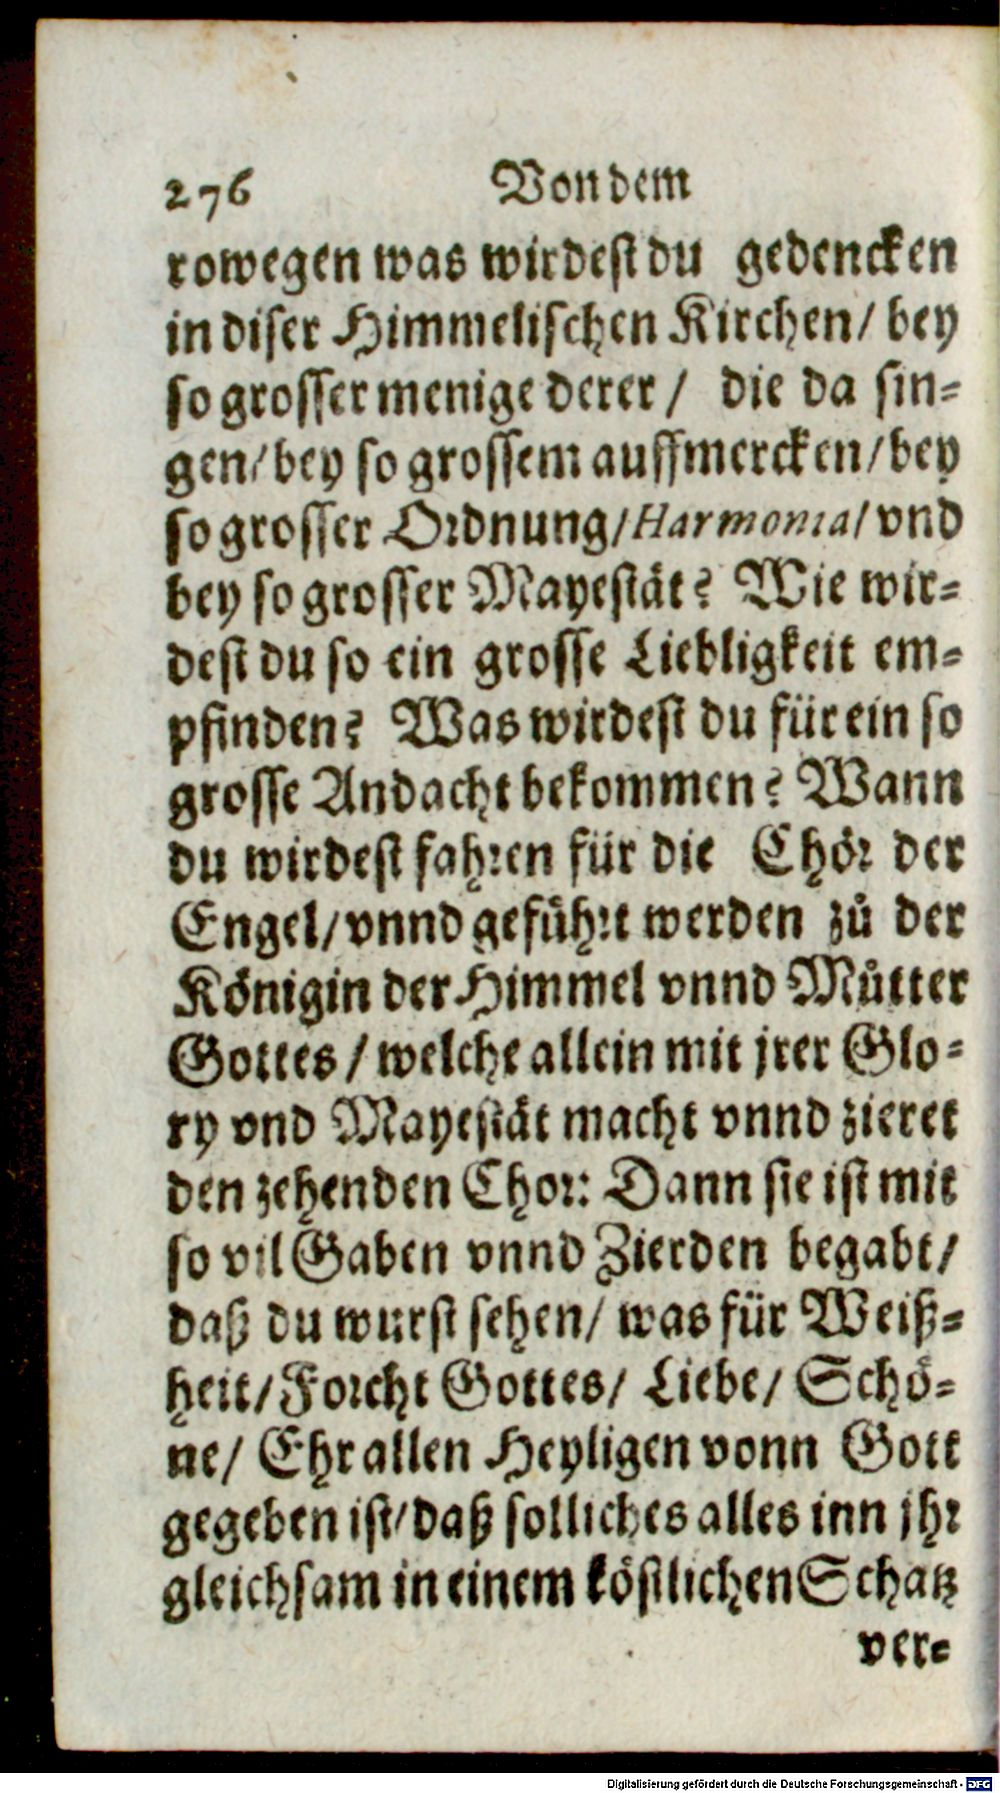 276 Von dem
rowegen was wirdest du gedencken
in diser Himmelischen Kirchen/ bey
so grosser menige derer/ die da sin-
gen/ bey so grossem auffmercken/ bey
so grosser Ordnung/ Harmonia/ vnd
bey so grosser Mayestät? Wie wir-
dest du so ein grosse Liebligkeit em-
pfinden? Was wirdest du für ein so
grosse Andacht bekommen? Wann
du wirdest fahren für die Chör der
Engel/ vnnd geführt werden zů der
Königin der Himmel vnnd Můtter
Gottes/ welche allein mit jrer Glo-
ry vnd Mayestät macht vnnd zieret
den zehenden Chor: Dann sie ist mit
so vil Gaben vnnd Zierden begabt/
daß du wurst sehen/ was für Weiß-
heit/ Forcht Gottes/ Liebe/ Schö-
ne/ Ehr allen Heyligen vonn Gott
gegeben ist/ daß solliches alles inn jhr
gleichsam in einem köstlichen Schatz
ver-
Digitalisierung gefördert durch die Deutsche Forschungsgemeinschaft - DFG